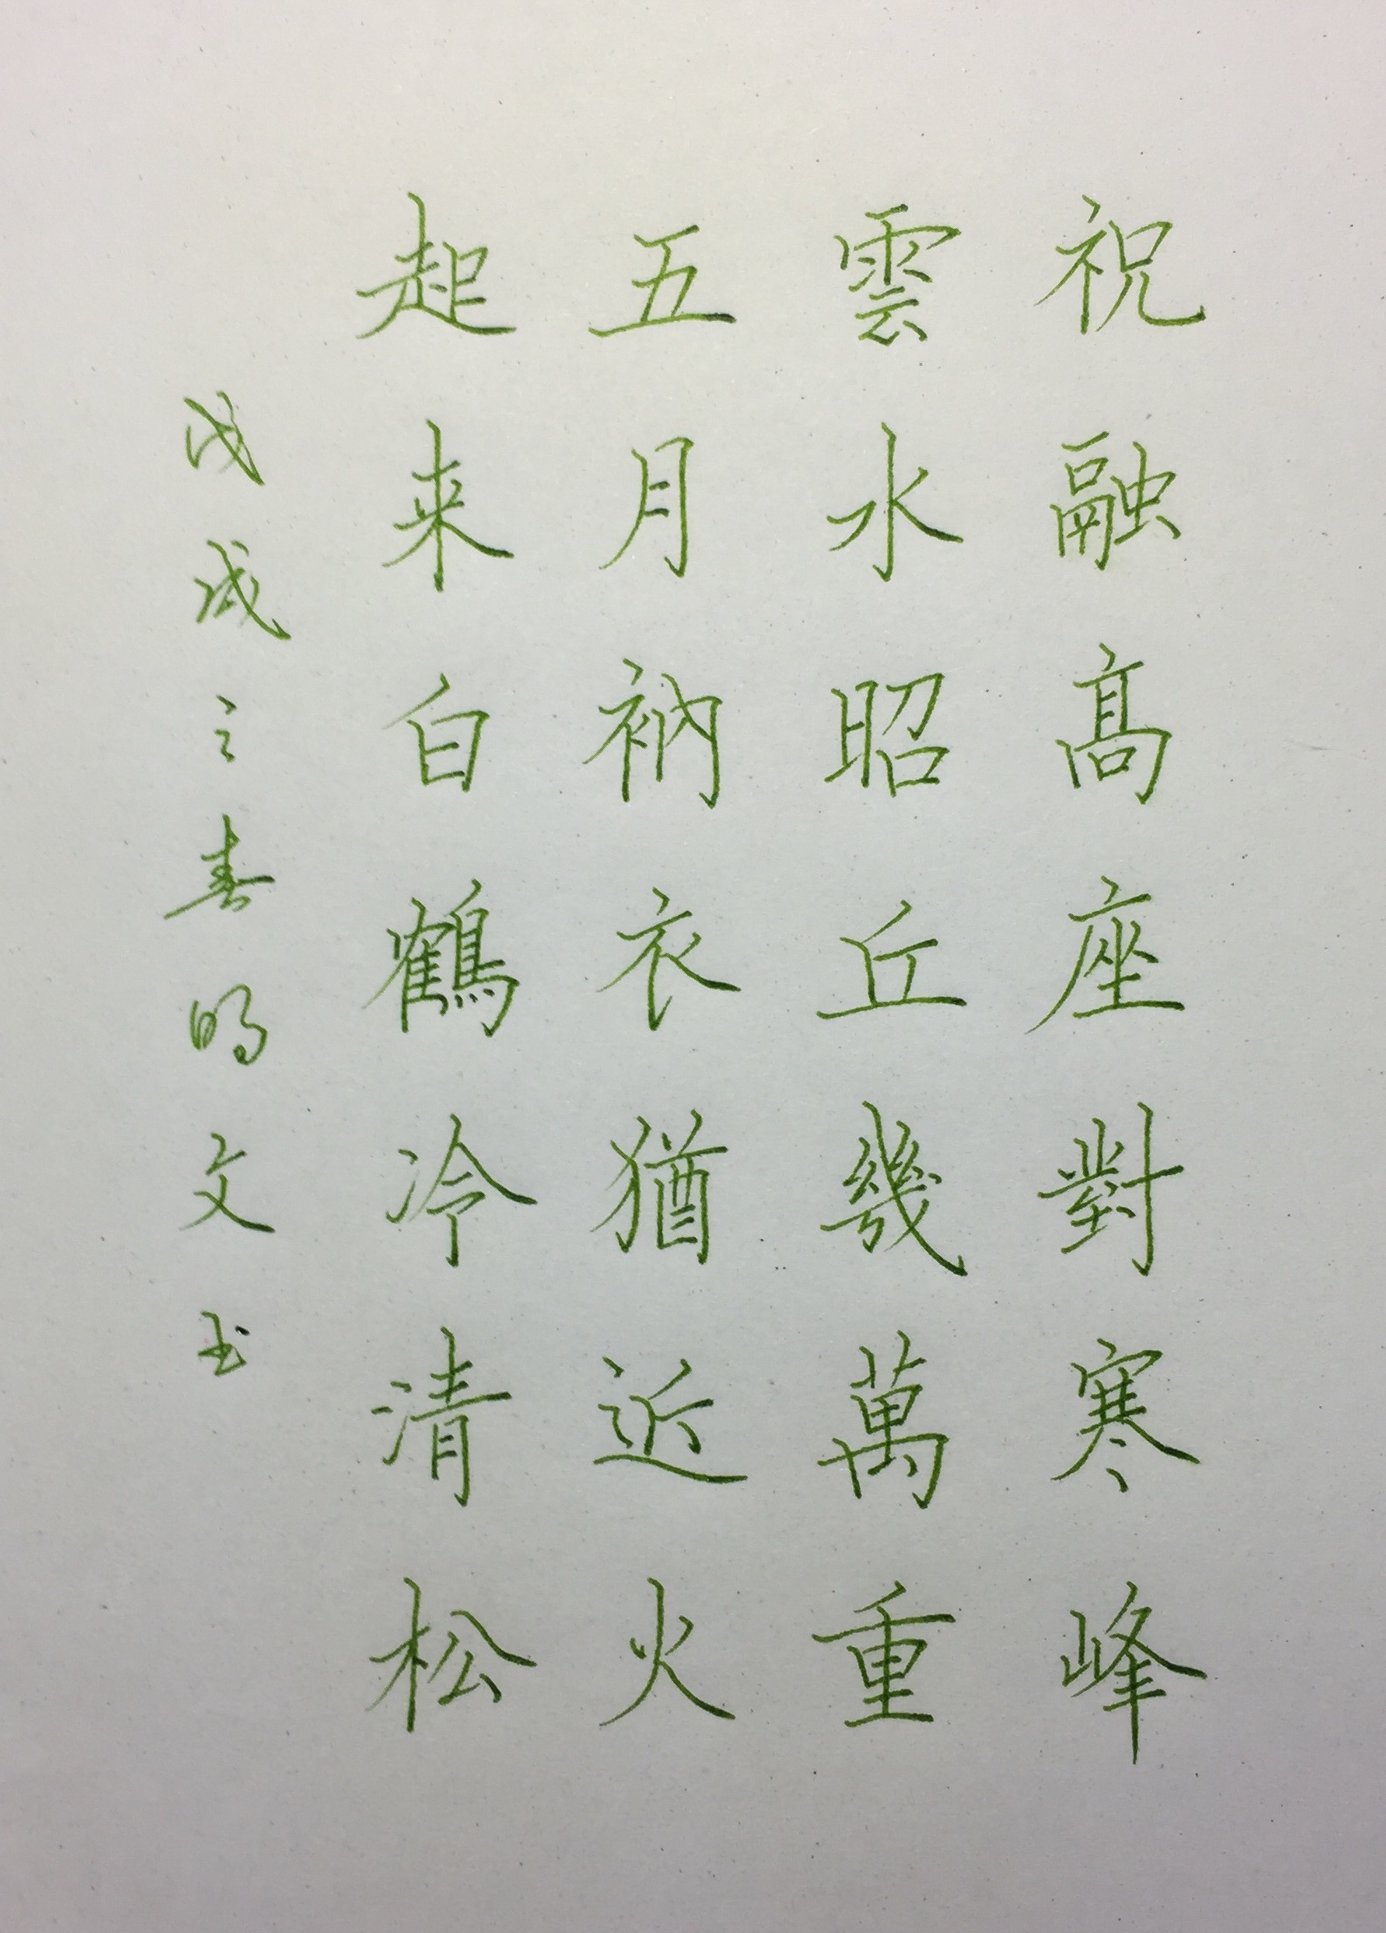 祝融高座對寒峰
雲水昭丘幾萬重
五月衲衣猶近火
起来白鶴冷清松
戊戌之春明文书